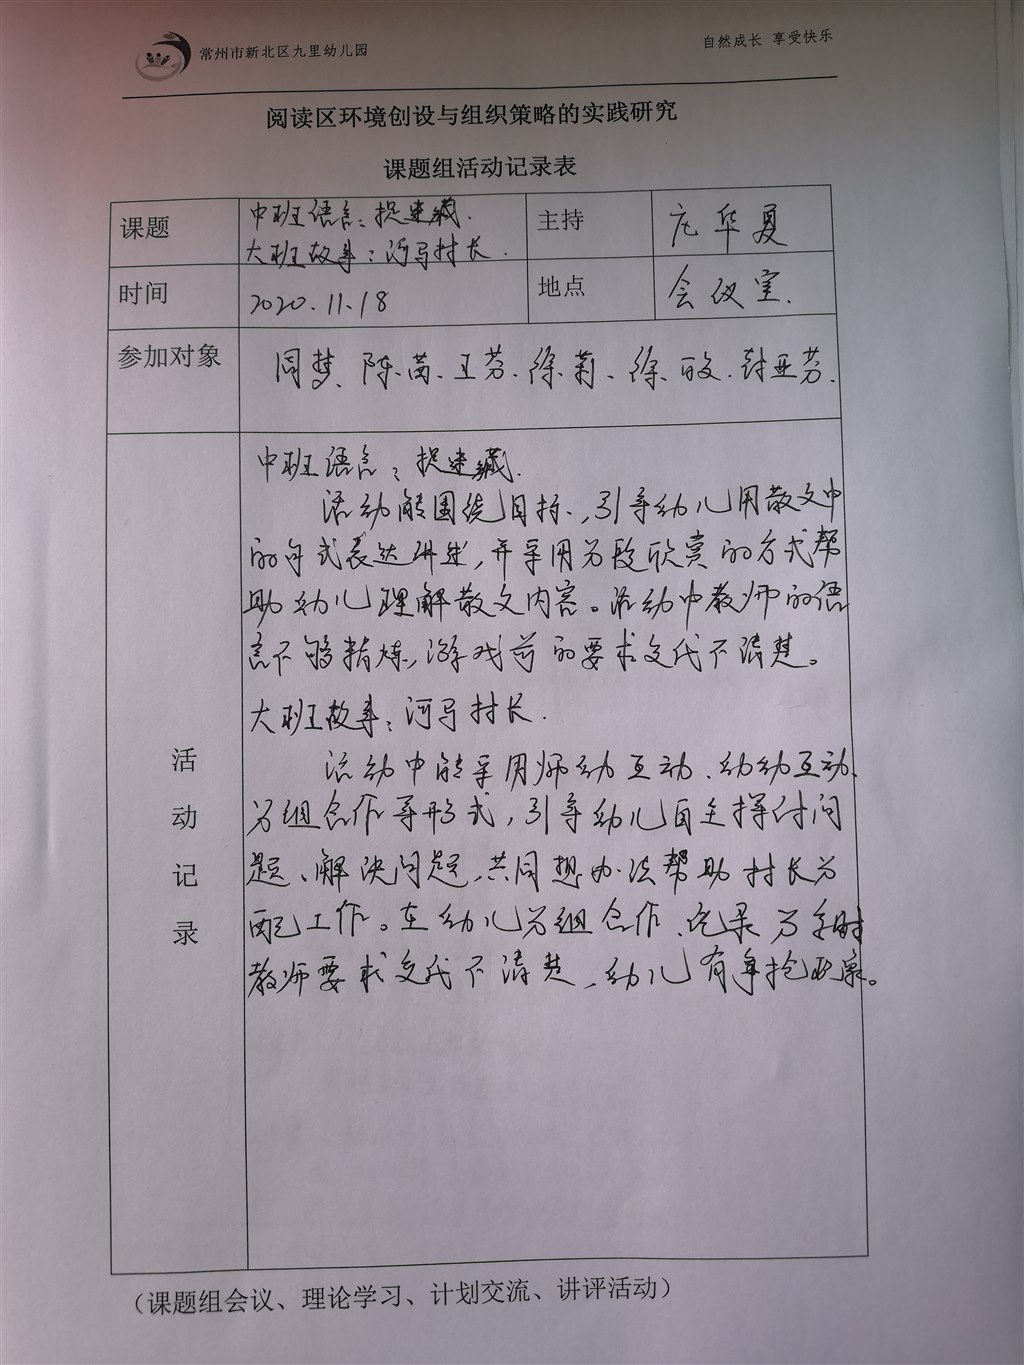 常州市新北区九里幼儿园
自然成长 享受快乐
阅读区环境创设与组织策略的实践研究
课题组活动记录表
课题
中班语言：捉迷藏.
大班故事：河马村长.
主持
庄华夏
时间
2020.11.18
地点
会议室.
参加对象
陈茜、王芬、徐莉、徐 封亚芬.
活动记录
中班语言：捉迷藏.
活动能围绕目标，引导幼儿用散文中
的句式表达讲述，并采用分段欣赏的方式帮
助幼儿理解散文内容。活动中教师的语
言不够精炼，游戏前的要求交代不清楚。
大班故事：河马村长.
活动中能采用师幼互动、幼幼互动、
分组合作等形式，引导幼儿自主探讨问
题、解决问题，共同想办法帮助村长分
配工作。在幼儿分组合作、记录分享时
教师要求交代不清楚，幼儿有争抢现象。
（课题组会议、理论学习、计划交流、讲评活动）